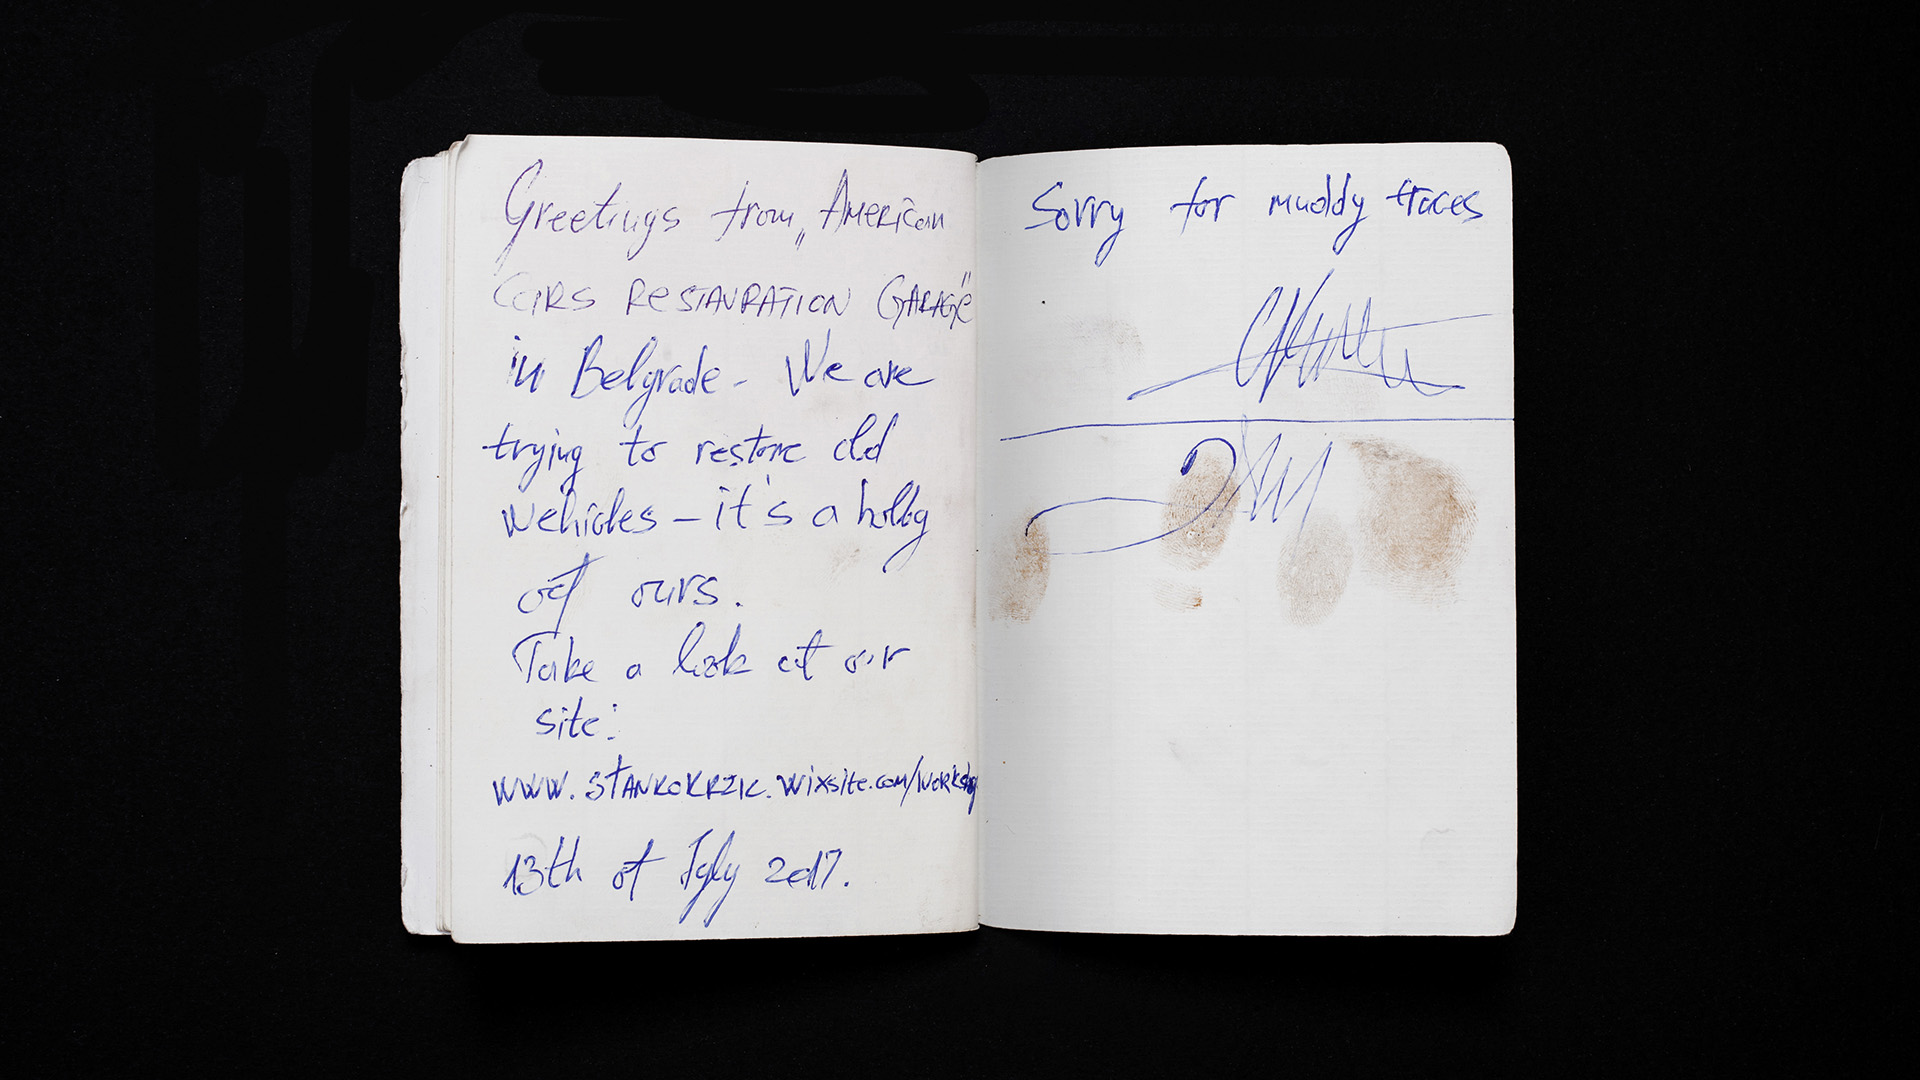 Greetings from „American
CARS RESTAURATION GARAGE"
in Belgrade - We are
trying to restore old
wehicles - it's a hobby
of ours.
Take a look at our
site:
www.STANKOKRZIC.wixsite.com/
13th of July 2017.
Sorry for muddy traces